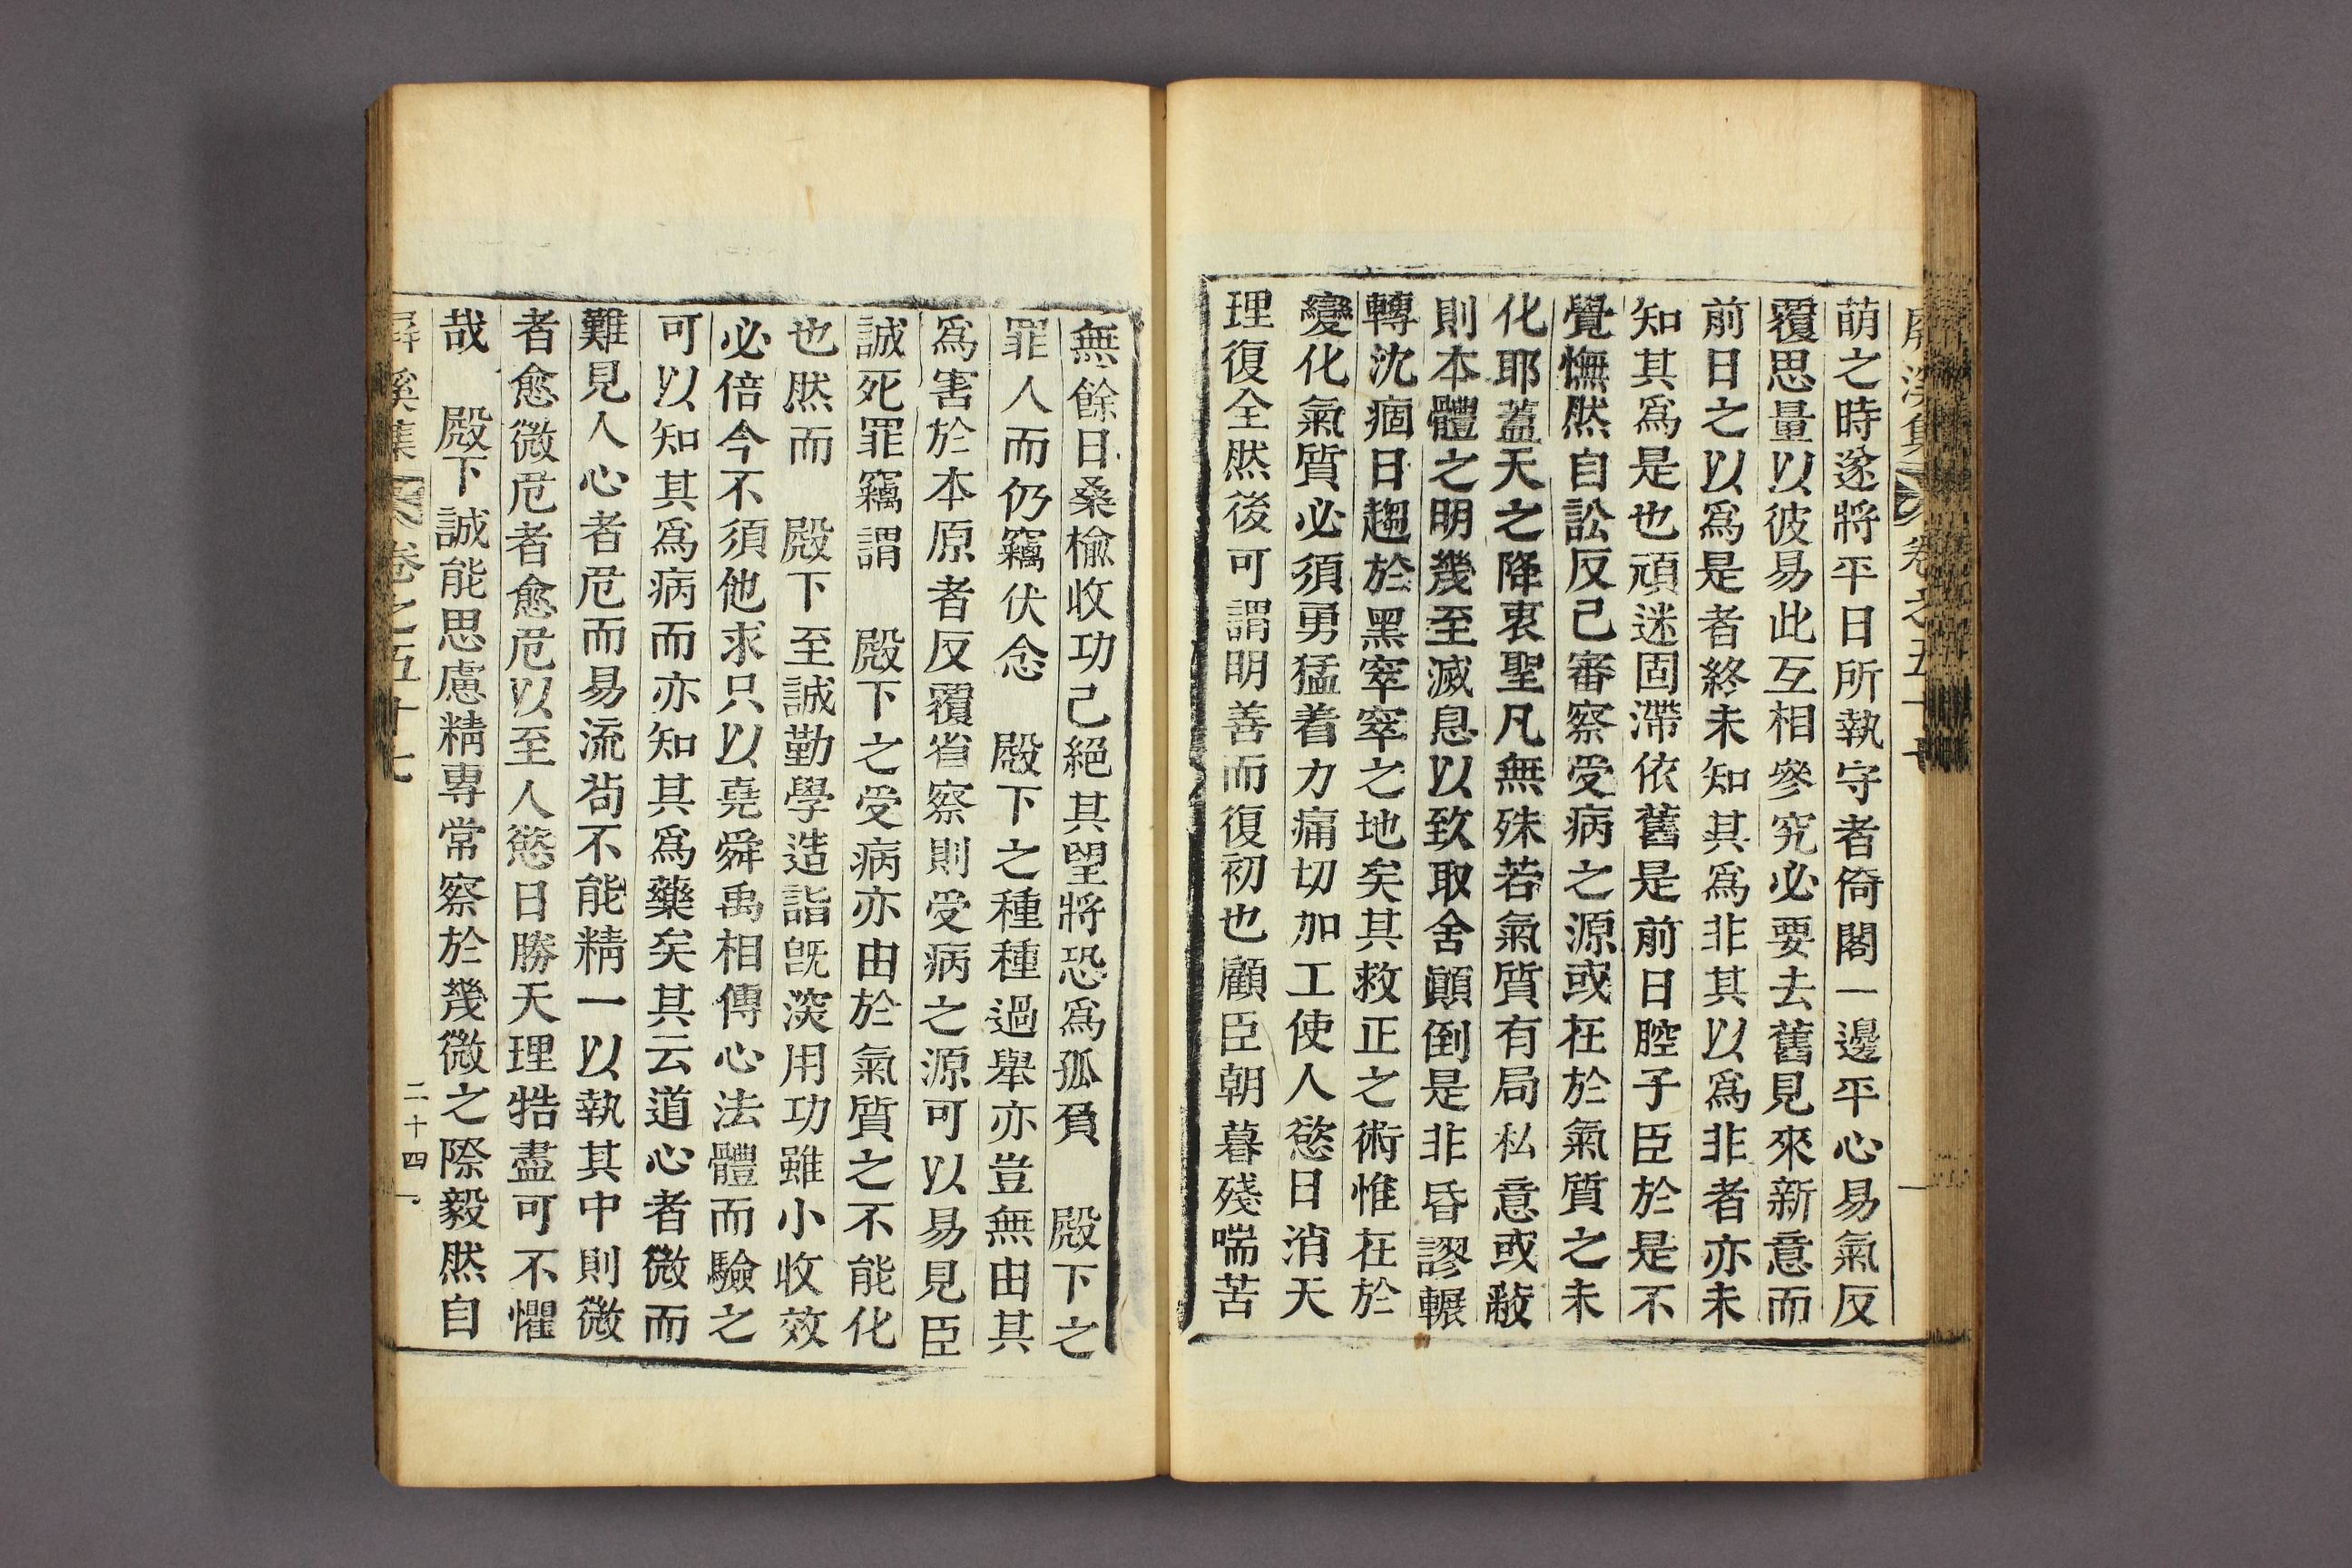 屛溪集 卷之五十七
萌之時遂將平日所執守者倚閣一邊平心易氣反
覆思量以彼易此互相參究必要去舊見來新意而
前日之以爲是者終未知其爲非其以爲非者亦未
知其爲是也頑迷固滯依舊是前日腔子臣於是不
覺憮然自訟反己審察受病之源或在於氣質之未
化耶蓋天之降衷聖凡無殊若氣質有局私意或蔽
則本體之明幾至滅息以致取舍顚倒是非昏謬輾
轉沈痼日趨於黑窣窣之地矣其救正之術惟在於
變化氣質必須勇猛着力痛切加工使人慾日消天
理復全然後可謂明善而復初也顧臣朝暮殘喘苦
無餘日桑楡收功已絕其望將恐爲孤負 殿下之
罪人而仍竊伏念 殿下之種種過擧亦豈無由其
爲害於本原者反覆省察則受病之源可以易見臣
誠死罪竊謂 殿下之受病亦由於氣質之不能化
也然而 殿下至誠勤學造詣旣深用功雖小收效
必倍今不須他求只以堯舜禹相傳心法體而驗之
可以知其爲病而亦知其爲藥矣其云道心者微而
難見人心者危而易流苟不能精一以執其中則微
者愈微危者愈危以至人慾日勝天理牿盡可不懼
哉 殿下誠能思慮精專常察於幾微之際毅然自
屛溪集 卷之五十七 二十四